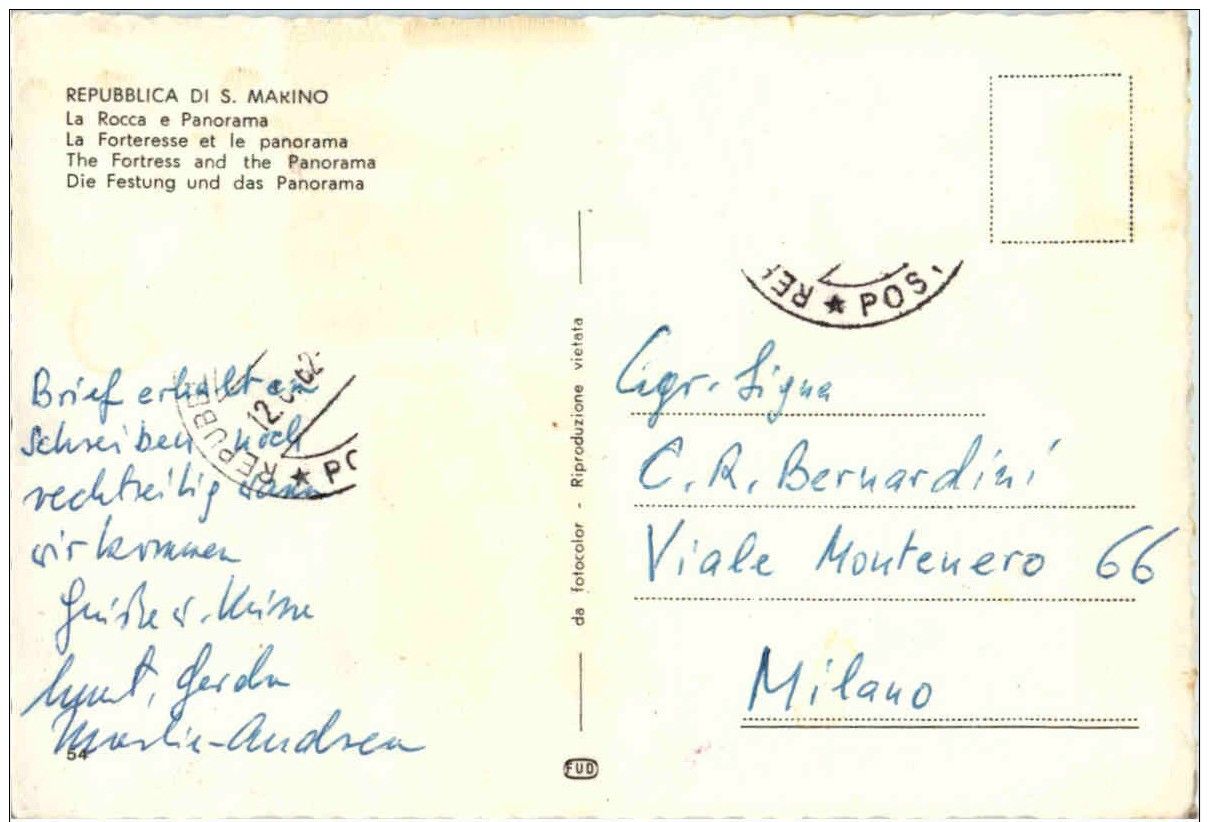 REPUBBLICA DI S. MARINO
La Rocca e Panorama
La Forteresse et le panorama
The Fortress and the Panorama
Die Festung und das Panorama
Brief erhalten
schreiben noch
rechtzeitig wann
wir kommen
Grüße u. Küsse
Gerda
Martin-Andrea
54
REPUBB
12
★ PO
da fotocolor - Riproduzione vietata
FUD
RE ★ POS
C. R. Bernardini
Viale Montenero 66
Milano